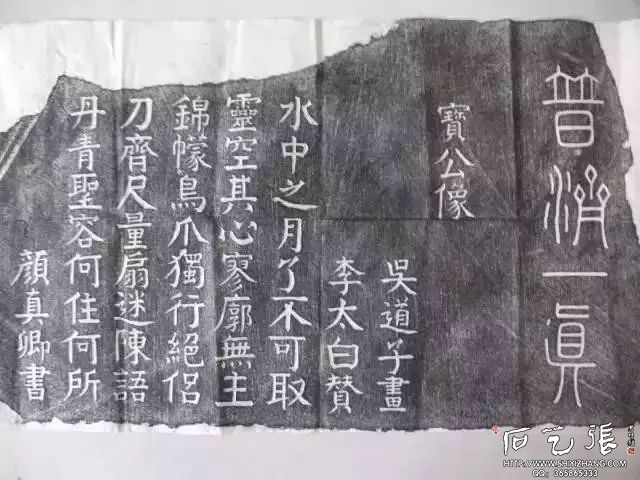 普
一眞
寶公像
吳道子畫
李太白贊
水中之月了不可取
靈空其心寥廓無主
錦幪鳥爪獨行絕侶
刀齊尺量扇迷陳語
丹青聖容何住何所
顏真卿書
石艺張
HTTP://WWW.SHIYIZHANG.COM
QQ: 365865333